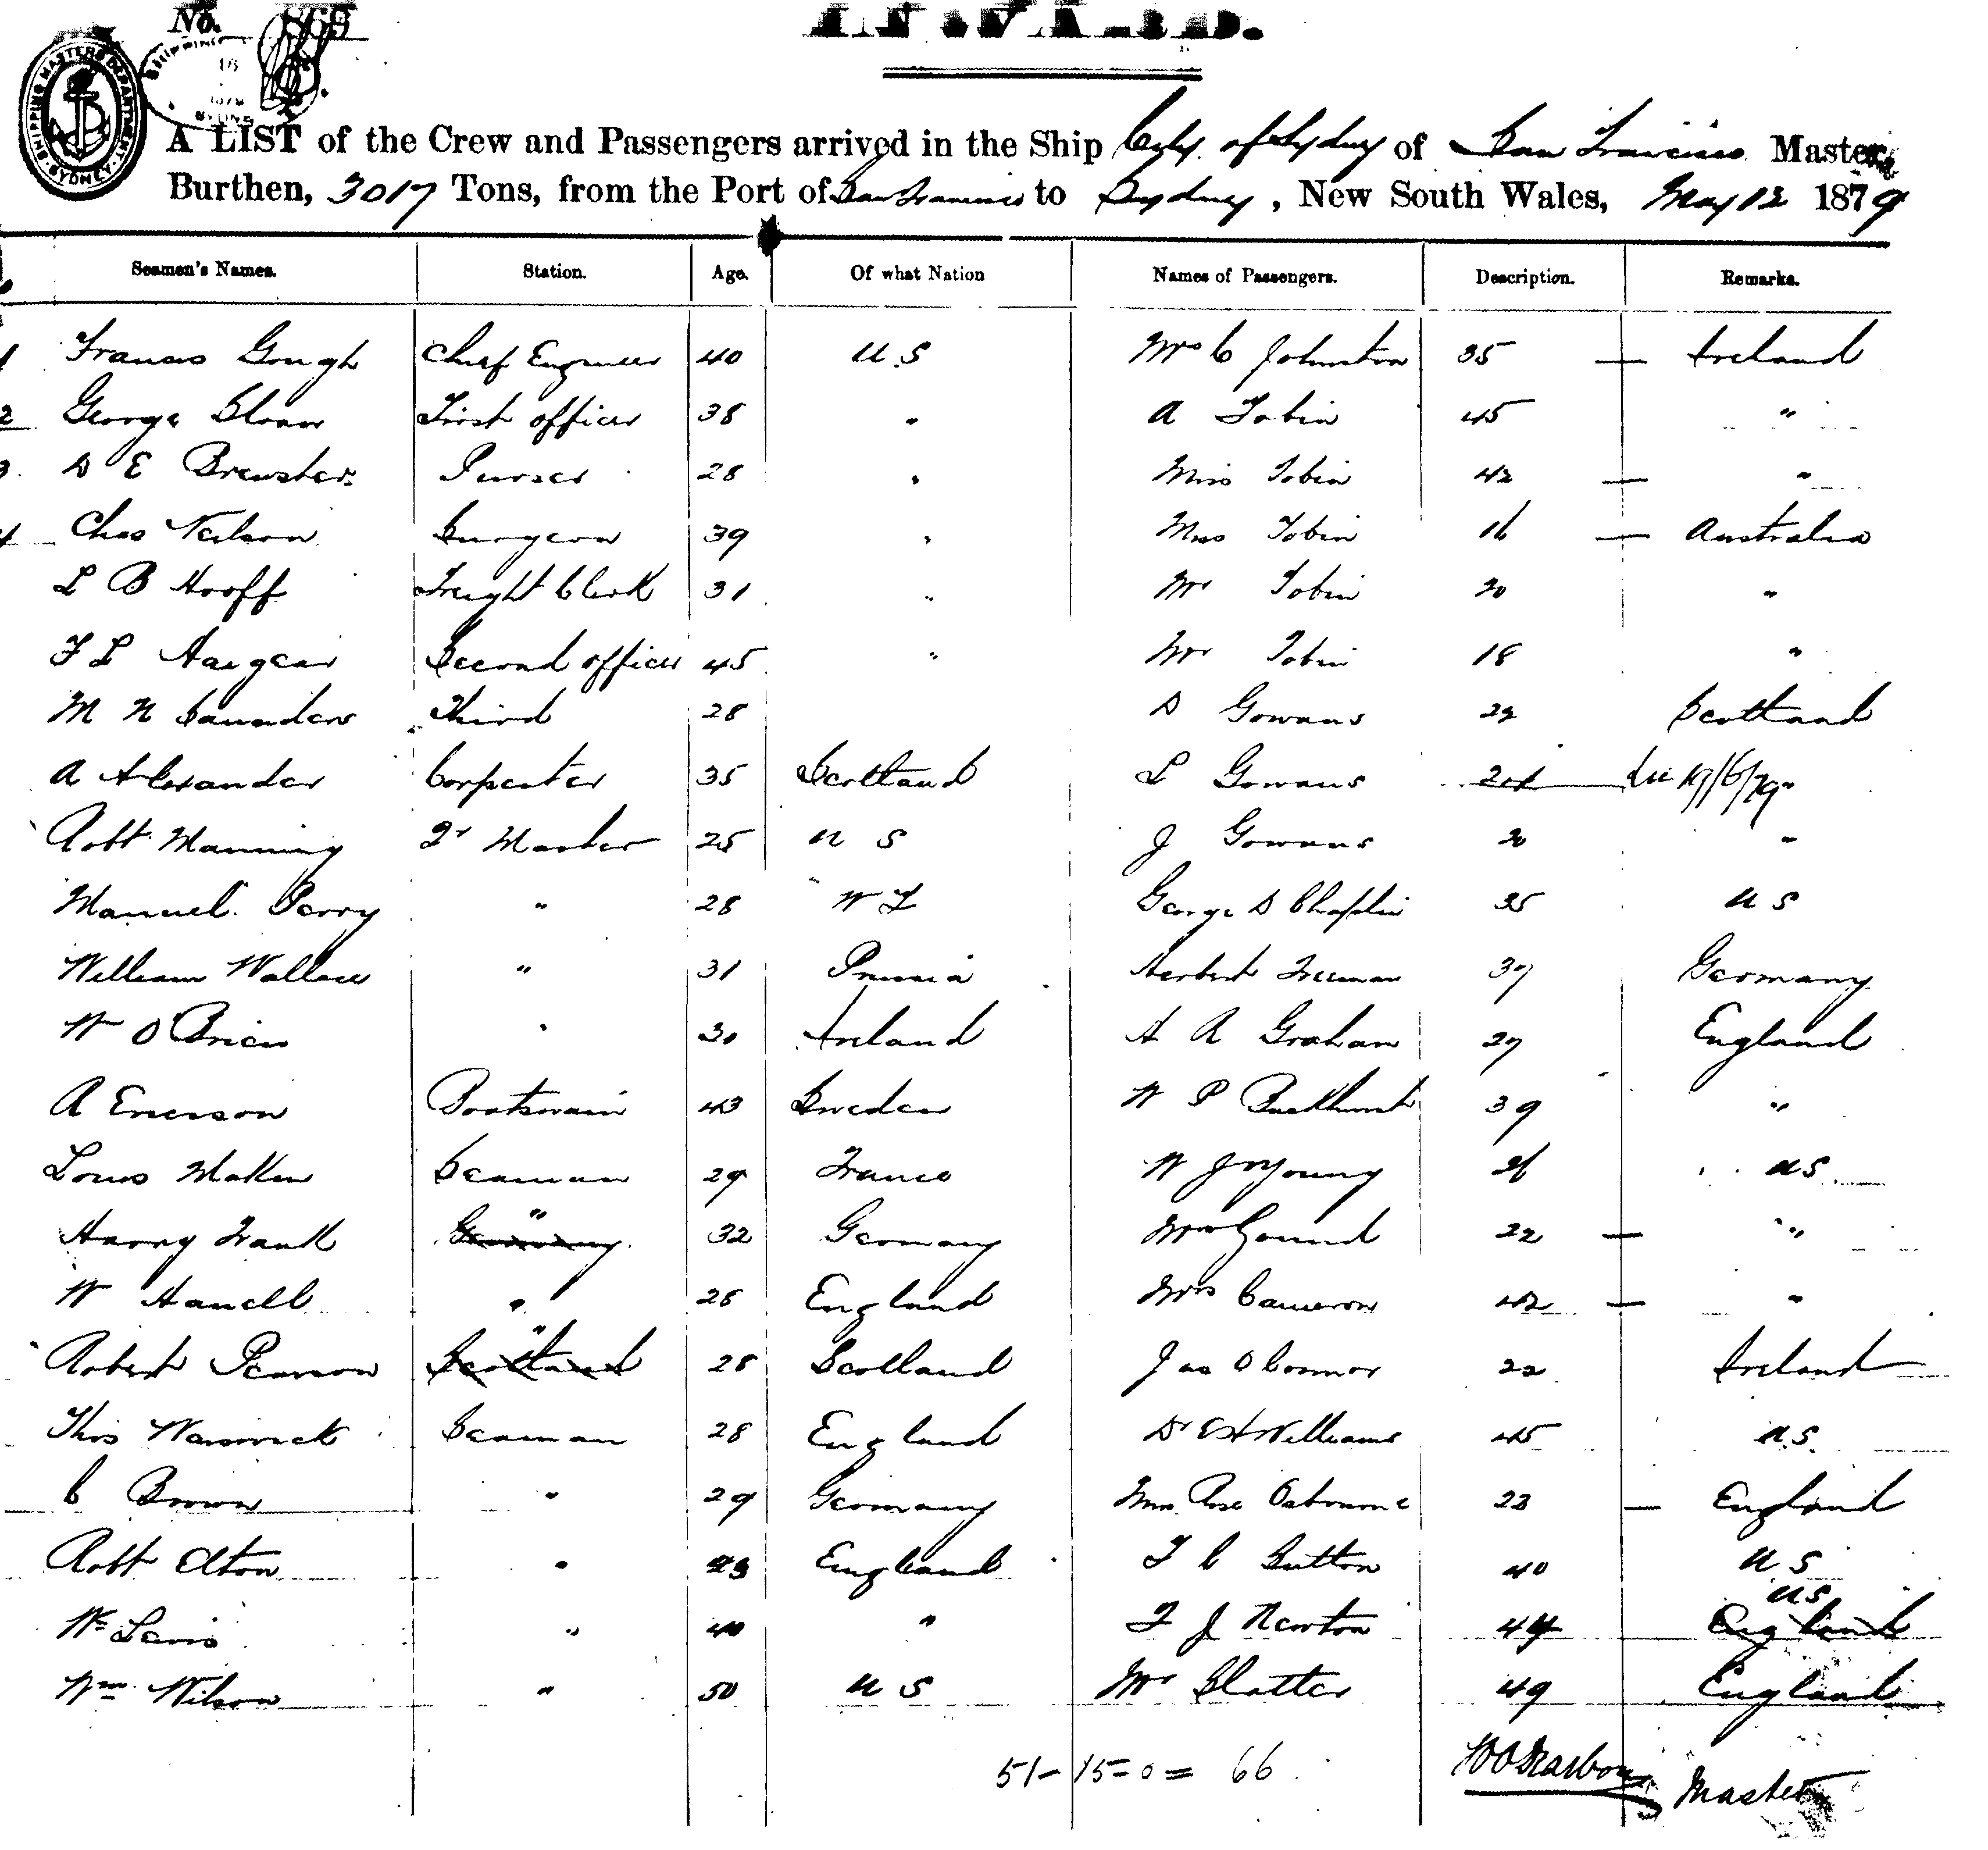 No. 869
INWARD.
SHIPPING MASTERS DEPARTMENT SYDNEY
A LIST of the Crew and Passengers arrived in the Ship City of Sydney of San Francisco Master,
Burthen, 3017 Tons, from the Port of San Francisco to Sydney, New South Wales, May 12 1879
Seamen's Names. Station. Age. Of what Nation Names of Passengers. Description. Remarks.
1 Francis Gough Chief Engineer 40 U.S Mrs C Johnston 35 — Ireland
2 George Sloan First officer 38 " A Tobin 45 "
3. D E Brewster Purser 28 " Miss Tobin 42 — "
4 Chas Neilson Surgeon 39 " Miss Tobin 16 — Australia
L B Hooff Freight Clerk 31 " Mr Tobin 20 "
F L Second officer 45 " Mr Tobin 18 "
M N Saunders Third 28 D Gowans 22 Scotland
A Alexander Carpenter 35 Scotland L Gowans "
Robt Manning Qr Master 25 U S J Gowans 20 "
Manuel Perry " 28 W I George D Chaplin 35 U S
William Wallace " 31 Prussia Herbert Freeman 37 Germany
W O'Brien " 30 Ireland A R Graham 27 England
A Ericson Boatswain 43 Sweden W P 39 "
Louis Seaman 29 France W J Young 26 U S
Harry Frank Germany " 32 Germany 22 — "
W " 28 England Mrs Cameron 42 — "
Robert Pearson Scotland " 28 Scotland Jas O Connor 22 Ireland
Thos Warwick Seaman 28 England Dr E H Williams 45 U.S.
C Brown " 29 Germany Miss Rose Osbourne 23 — England
Robt Elton " 43 England F C Sutton 40 U S
Wm Lewis " 40 " F J Newton 44 England U S
Wm Wilson " 50 U S Mr Slatter 49 England
51 - 15 = 0 = 66
Master